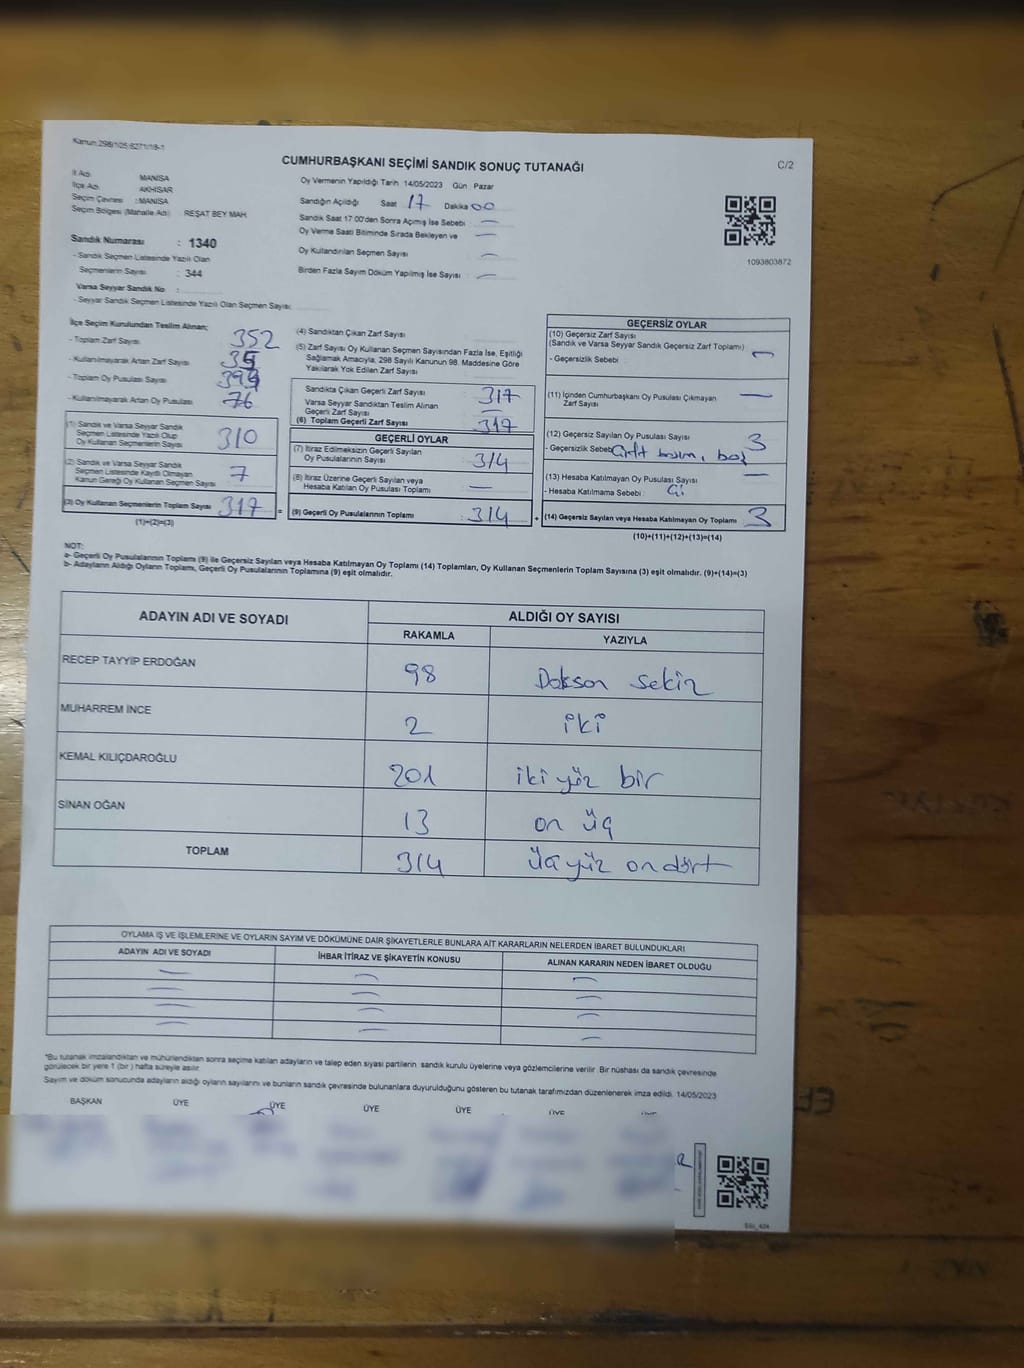 Kanun:298/105;6271/18-1
CUMHURBAŞKANI SEÇİMİ SANDIK SONUÇ TUTANAĞI
C/2
İl Adı: MANİSA
İlçe Adı: AKHİSAR
Seçim Çevresi :MANİSA
Seçim Bölgesi (Mahalle Adı) REŞAT BEY MAH.
Oy Vermenin Yapıldığı Tarih 14/05/2023 Gün Pazar
Sandığın Açıldığı Saat 17 Dakika 00
Sandık Saat 17:00'den Sonra Açılmış İse Sebebi —
Oy Verme Saati Bitiminde Sırada Bekleyen ve —
Oy Kullandırılan Seçmen Sayısı —
Birden Fazla Sayım Döküm Yapılmış İse Sayısı —
1093803872
Sandık Numarası : 1340
- Sandık Seçmen Listesinde Yazılı Olan
Seçmenlerin Sayısı : 344
Varsa Seyyar Sandık No :
- Seyyar Sandık Seçmen Listesinde Yazılı Olan Seçmen Sayısı:
İlçe Seçim Kurulundan Teslim Alınan;
- Toplam Zarf Sayısı 352
- Kullanılmayarak Artan Zarf Sayısı 35
- Toplam Oy Pusulası Sayısı
- Kullanılmayarak Artan Oy Pusulası 76
(1) Sandık ve Varsa Seyyar Sandık
Seçmen Listesinde Yazılı Olup
Oy Kullanan Seçmenlerin Sayısı 310
(2) Sandık ve Varsa Seyyar Sandık
Seçmen Listesinde Kayıtlı Olmayan
Kanun Gereği Oy Kullanan Seçmen Sayısı 7
(3) Oy Kullanan Seçmenlerin Toplam Sayısı 317 =
(1)+(2)=(3)
(4) Sandıktan Çıkan Zarf Sayısı
(5) Zarf Sayısı Oy Kullanan Seçmen Sayısından Fazla İse, Eşitliği
Sağlamak Amacıyla, 298 Sayılı Kanunun 98. Maddesine Göre
Yakılarak Yok Edilen Zarf Sayısı
Sandıkta Çıkan Geçerli Zarf Sayısı 317
Varsa Seyyar Sandıktan Teslim Alınan
Geçerli Zarf Sayısı —
(6) Toplam Geçerli Zarf Sayısı 317
GEÇERLİ OYLAR
(7) İtiraz Edilmeksizin Geçerli Sayılan
Oy Pusulalarının Sayısı 314
(8) İtiraz Üzerine Geçerli Sayılan veya
Hesaba Katılan Oy Pusulası Toplamı —
(9) Geçerli Oy Pusulalarının Toplamı : 314 +
GEÇERSİZ OYLAR
(10) Geçersiz Zarf Sayısı
(Sandık ve Varsa Seyyar Sandık Geçersiz Zarf Toplamı)
- Geçersizlik Sebebi : —
(11) İçinden Cumhurbaşkanı Oy Pusulası Çıkmayan
Zarf Sayısı —
(12) Geçersiz Sayılan Oy Pusulası Sayısı 3
- Geçersizlik Sebebi Çift basım, boş
(13) Hesaba Katılmayan Oy Pusulası Sayısı —
- Hesaba Katılmama Sebebi
(14) Geçersiz Sayılan veya Hesaba Katılmayan Oy Toplamı 3
(10)+(11)+(12)+(13)=(14)
NOT:
a- Geçerli Oy Pusulalarının Toplamı (9) ile Geçersiz Sayılan veya Hesaba Katılmayan Oy Toplamı (14) Toplamları, Oy Kullanan Seçmenlerin Toplam Sayısına (3) eşit olmalıdır. (9)+(14)=(3)
b- Adayların Aldığı Oyların Toplamı, Geçerli Oy Pusulalarının Toplamına (9) eşit olmalıdır.
ADAYIN ADI VE SOYADI
ALDIĞI OY SAYISI
RAKAMLA YAZIYLA
RECEP TAYYİP ERDOĞAN 98 Doksan sekiz
MUHARREM İNCE 2 iki
KEMAL KILIÇDAROĞLU 201 iki yüz bir
SİNAN OĞAN 13 on üç
TOPLAM 314 Üç yüz on dört
OYLAMA İŞ VE İŞLEMLERİNE VE OYLARIN SAYIM VE DÖKÜMÜNE DAİR ŞİKAYETLERLE BUNLARA AİT KARARLARIN NELERDEN İBARET BULUNDUKLARI
ADAYIN ADI VE SOYADI İHBAR İTİRAZ VE ŞİKAYETİN KONUSU ALINAN KARARIN NEDEN İBARET OLDUĞU
— — —
— — —
— — —
— — —
*Bu tutanak imzalandıktan ve mühürlendikten sonra seçime katılan adayların ve talep eden siyasi partilerin sandık kurulu üyelerine veya gözlemcilerine verilir. Bir nüshası da sandık çevresinde
görülecek bir yere 1 (bir ) hafta süreyle asılır.
Sayım ve döküm sonucunda adayların aldığı oyların sayılarını ve bunların sandık çevresinde bulunanlara duyurulduğunu gösteren bu tutanak tarafımızdan düzenlenerek imza edildi. 14/05/2023
BAŞKAN ÜYE ÜYE ÜYE ÜYE ÜYE ÜYE